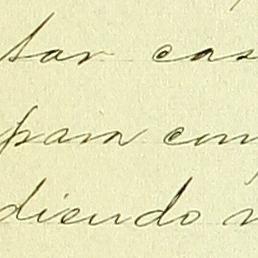 tar cas
para com
diendo